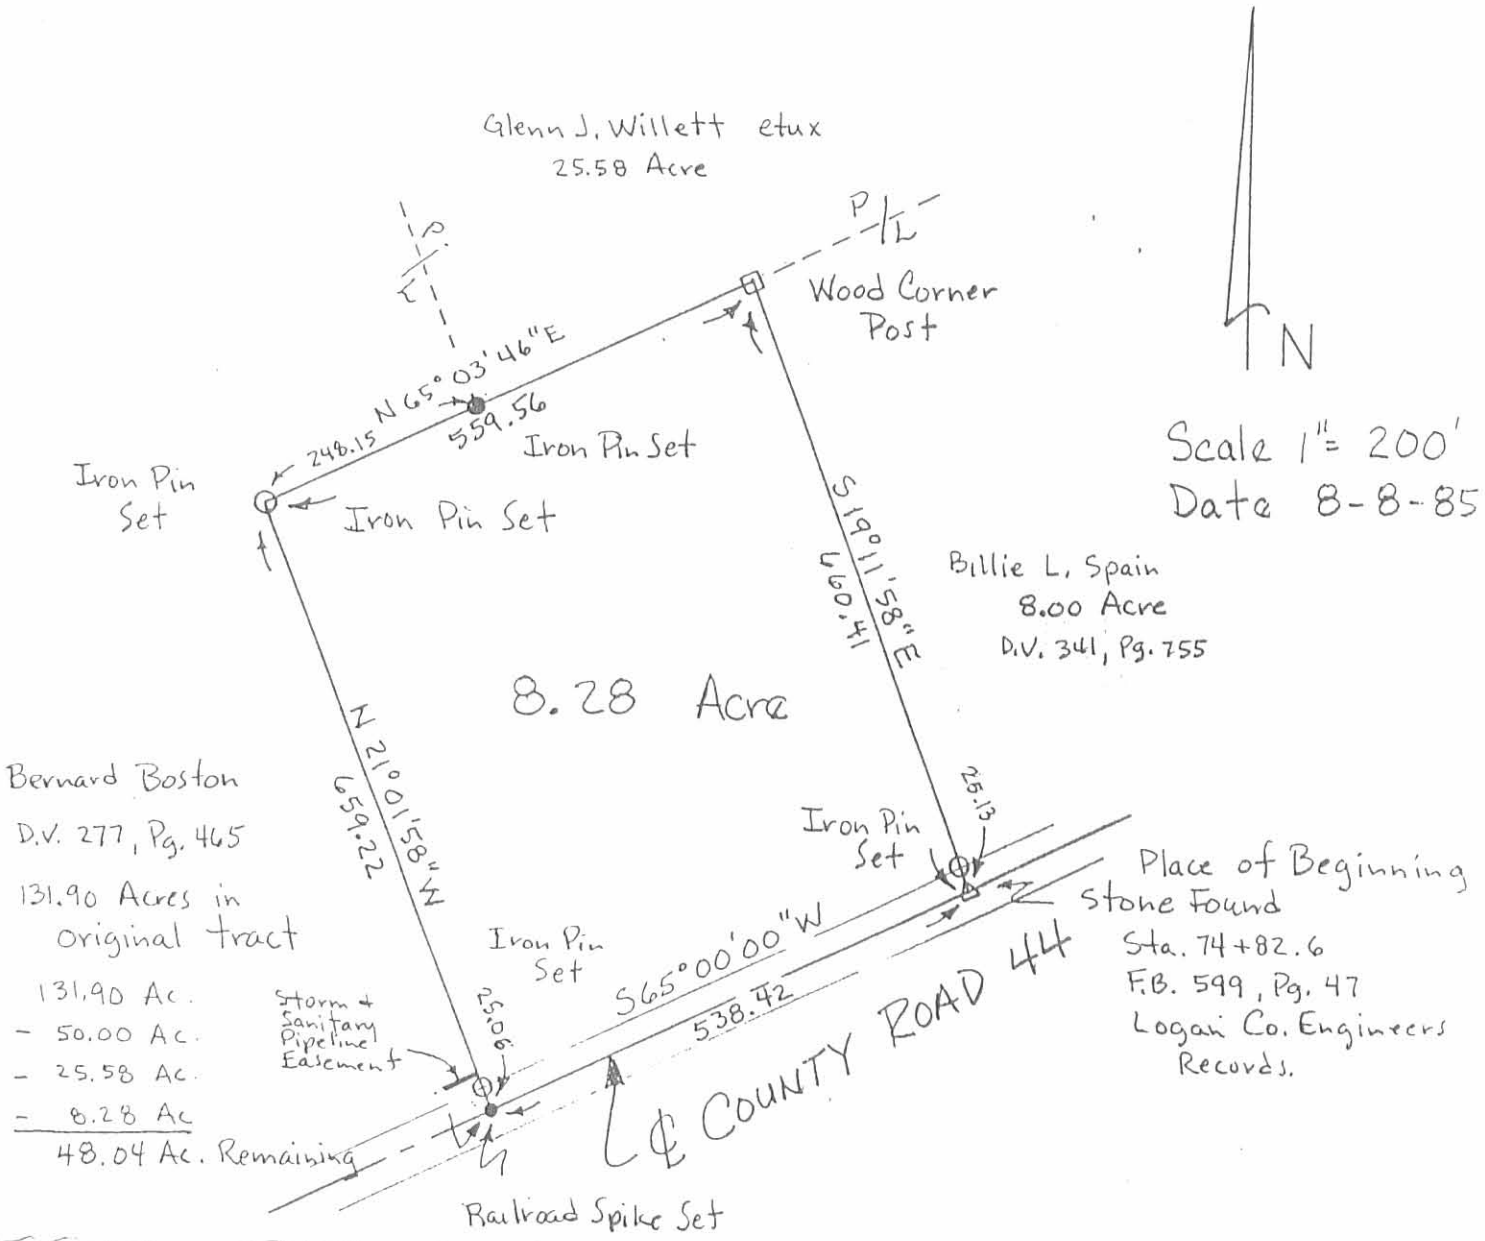 Glenn J. Willett etux
25.58 Acre
P/L
P/L
Wood Corner
Post
N
N 65° 03' 46" E
559.56
248.15
Iron Pin Set
Iron Pin
Set
Iron Pin Set
Scale 1" = 200'
Date 8-8-85
S 19° 11' 58" E
660.41
Billie L. Spain
8.00 Acre
D.V. 341, Pg. 755
8.28 Acre
N 21° 01' 58" W
659.22
Bernard Boston
D.V. 277, Pg. 465
131.90 Acres in
original tract
131.90 Ac.
- 50.00 Ac.
- 25.58 Ac.
- 8.28 Ac
48.04 Ac. Remaining
Storm +
Sanitary
Pipeline
Easement
Iron Pin
Set
25.06
Iron Pin
Set
25.13
S 65° 00' 00" W
538.42
Place of Beginning
Stone Found
Sta. 74+82.6
F.B. 599, Pg. 47
Logan Co. Engineers
Records.
℄ COUNTY ROAD 44
Railroad Spike Set